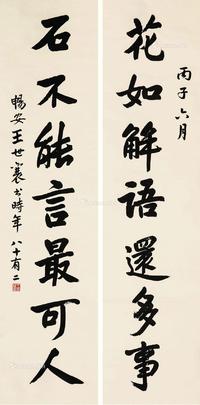 丙子六月
花如解语還多事
石不能言最可人
暢安王世襄書時年八十有二